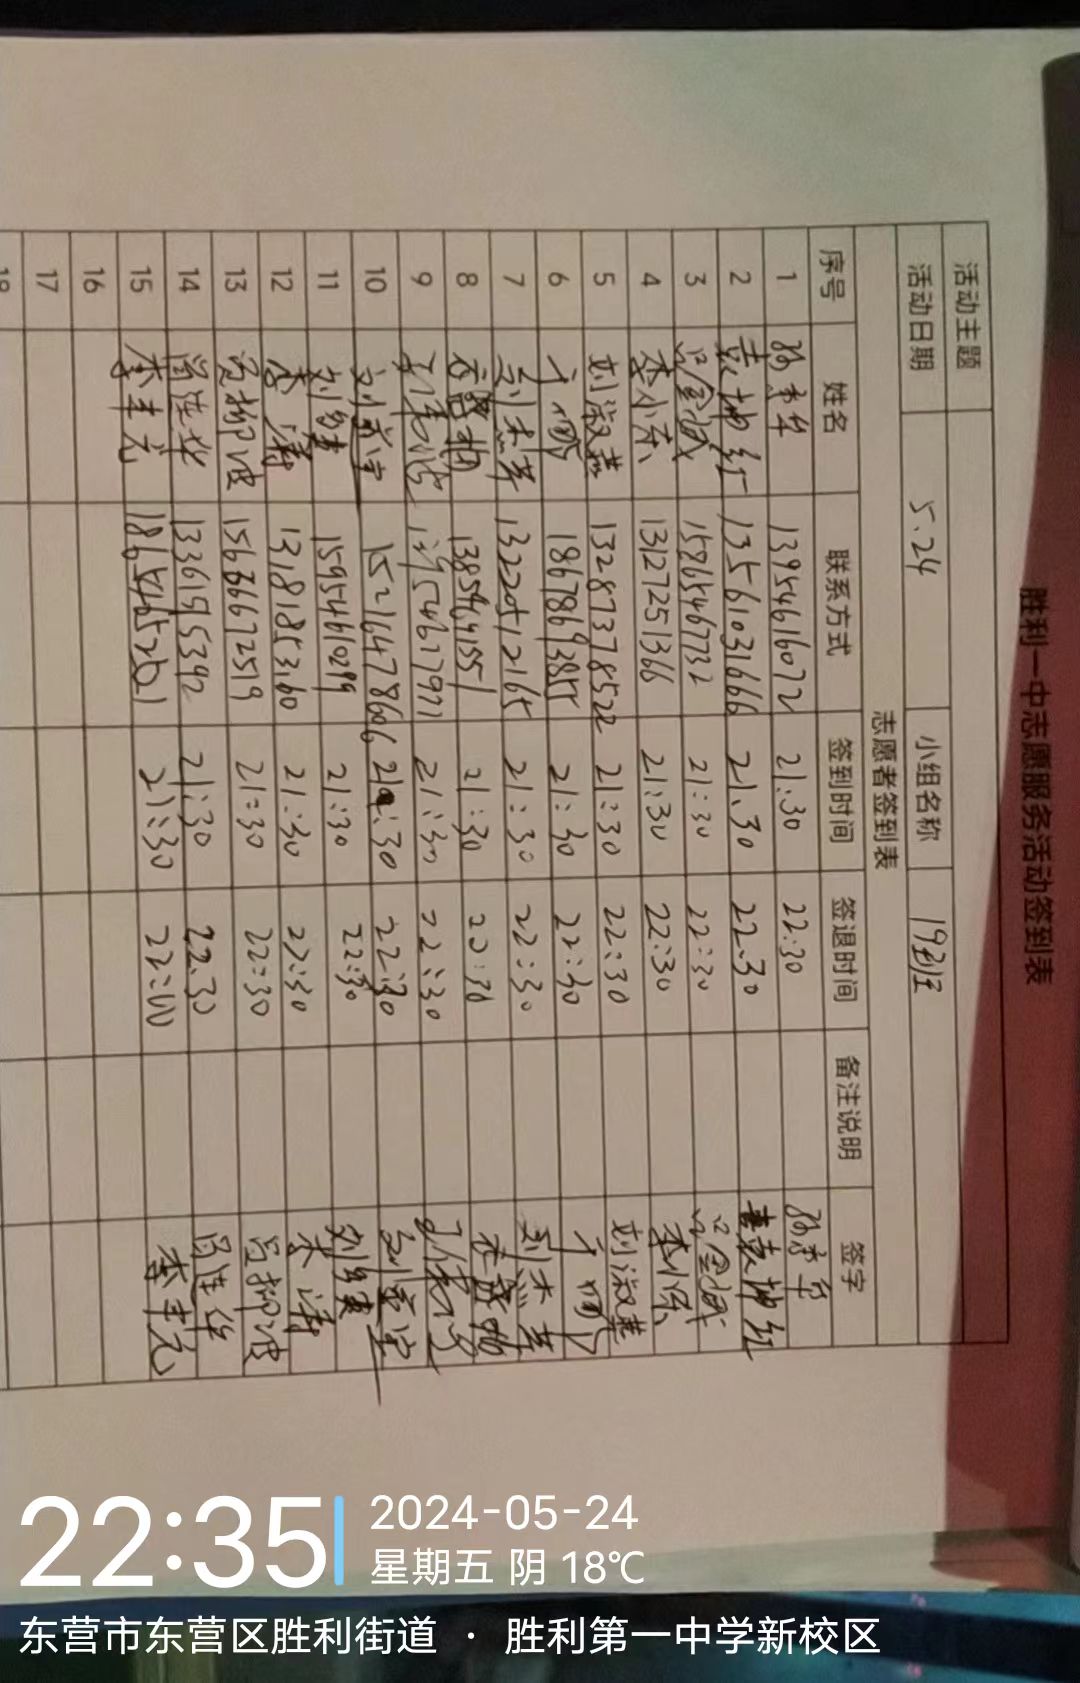 胜利一中志愿服务活动签到表
活动主题
活动日期 5.24 小组名称 19到班
志愿者签到表
序号 姓名 联系方式 签到时间 签退时间 备注说明 签字
1 13954616072 21:30 22:30
2 袁坤红 13561031666 21.30 22.30 袁坤红
3 吕金城 15865467732 21:30 22:30 吕金城
4 李小东 13127251366 21:30 22:30
5 刘淑燕 13287378522 21:30 22:30 刘淑燕
6 于鹏 18678693855 21:30 22:30 于鹏
7 13220512165 21:30 22:30
8 13854641551 21:30 22:30
9 21:30 22:30
10 15216447866 21:30 22:30
11 15954610299 21:30 22:30
12 李涛 13181853160 21:30 22:30 李涛
13 15636672519 21:30 22:30
14 13361515392 21:30 22.30
15 李丰元 21:30 22:00 李丰元
16
17
18
22:35
2024-05-24
星期五 阴 18℃
东营市东营区胜利街道 · 胜利第一中学新校区